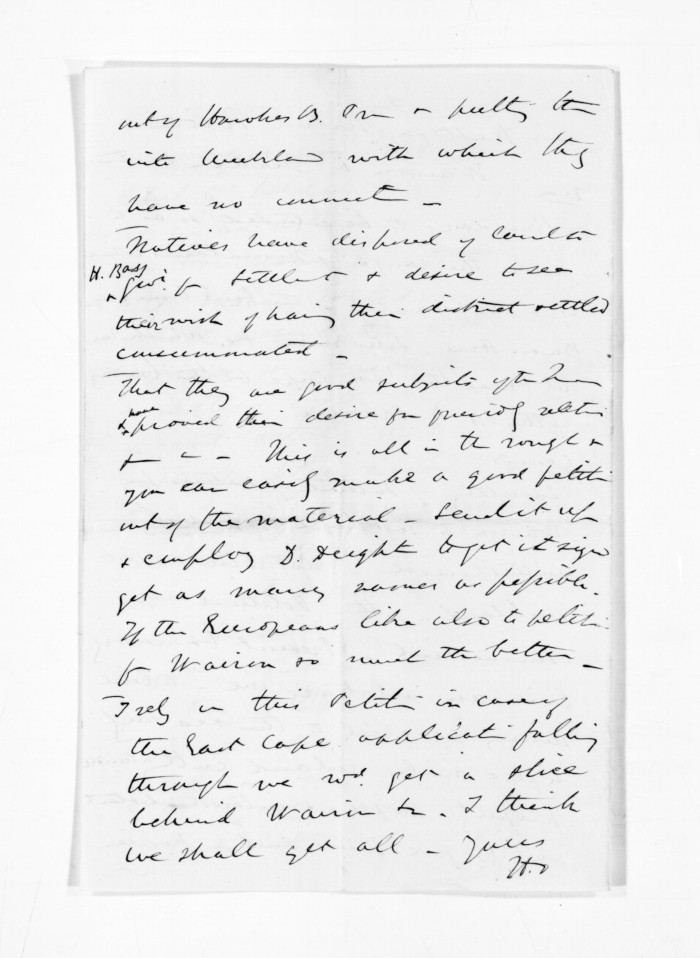 out of Hawkes B. Prov & putting them
into Auckland with which they
have no connect -
Natives have disposed of land to
H. Bay
& Govt. for settlet & desire to see
their wish of having their district settled
consummated -
That they are good subjects of the Queen
& have proved their desire for friendly relation
& - - This is all in the rough &
you can easily make a good petiti
out of the material - Send it up
& employ D. Deight to get it sign
get as many names as possible.
If the Europeans like also to petiti
for Wairoa so much the better -
I rely on this Petiti in case of
the East Cape applicati falling
through we wd. get a slice
behind Wairoa &c. I think
we shall get all - Yours